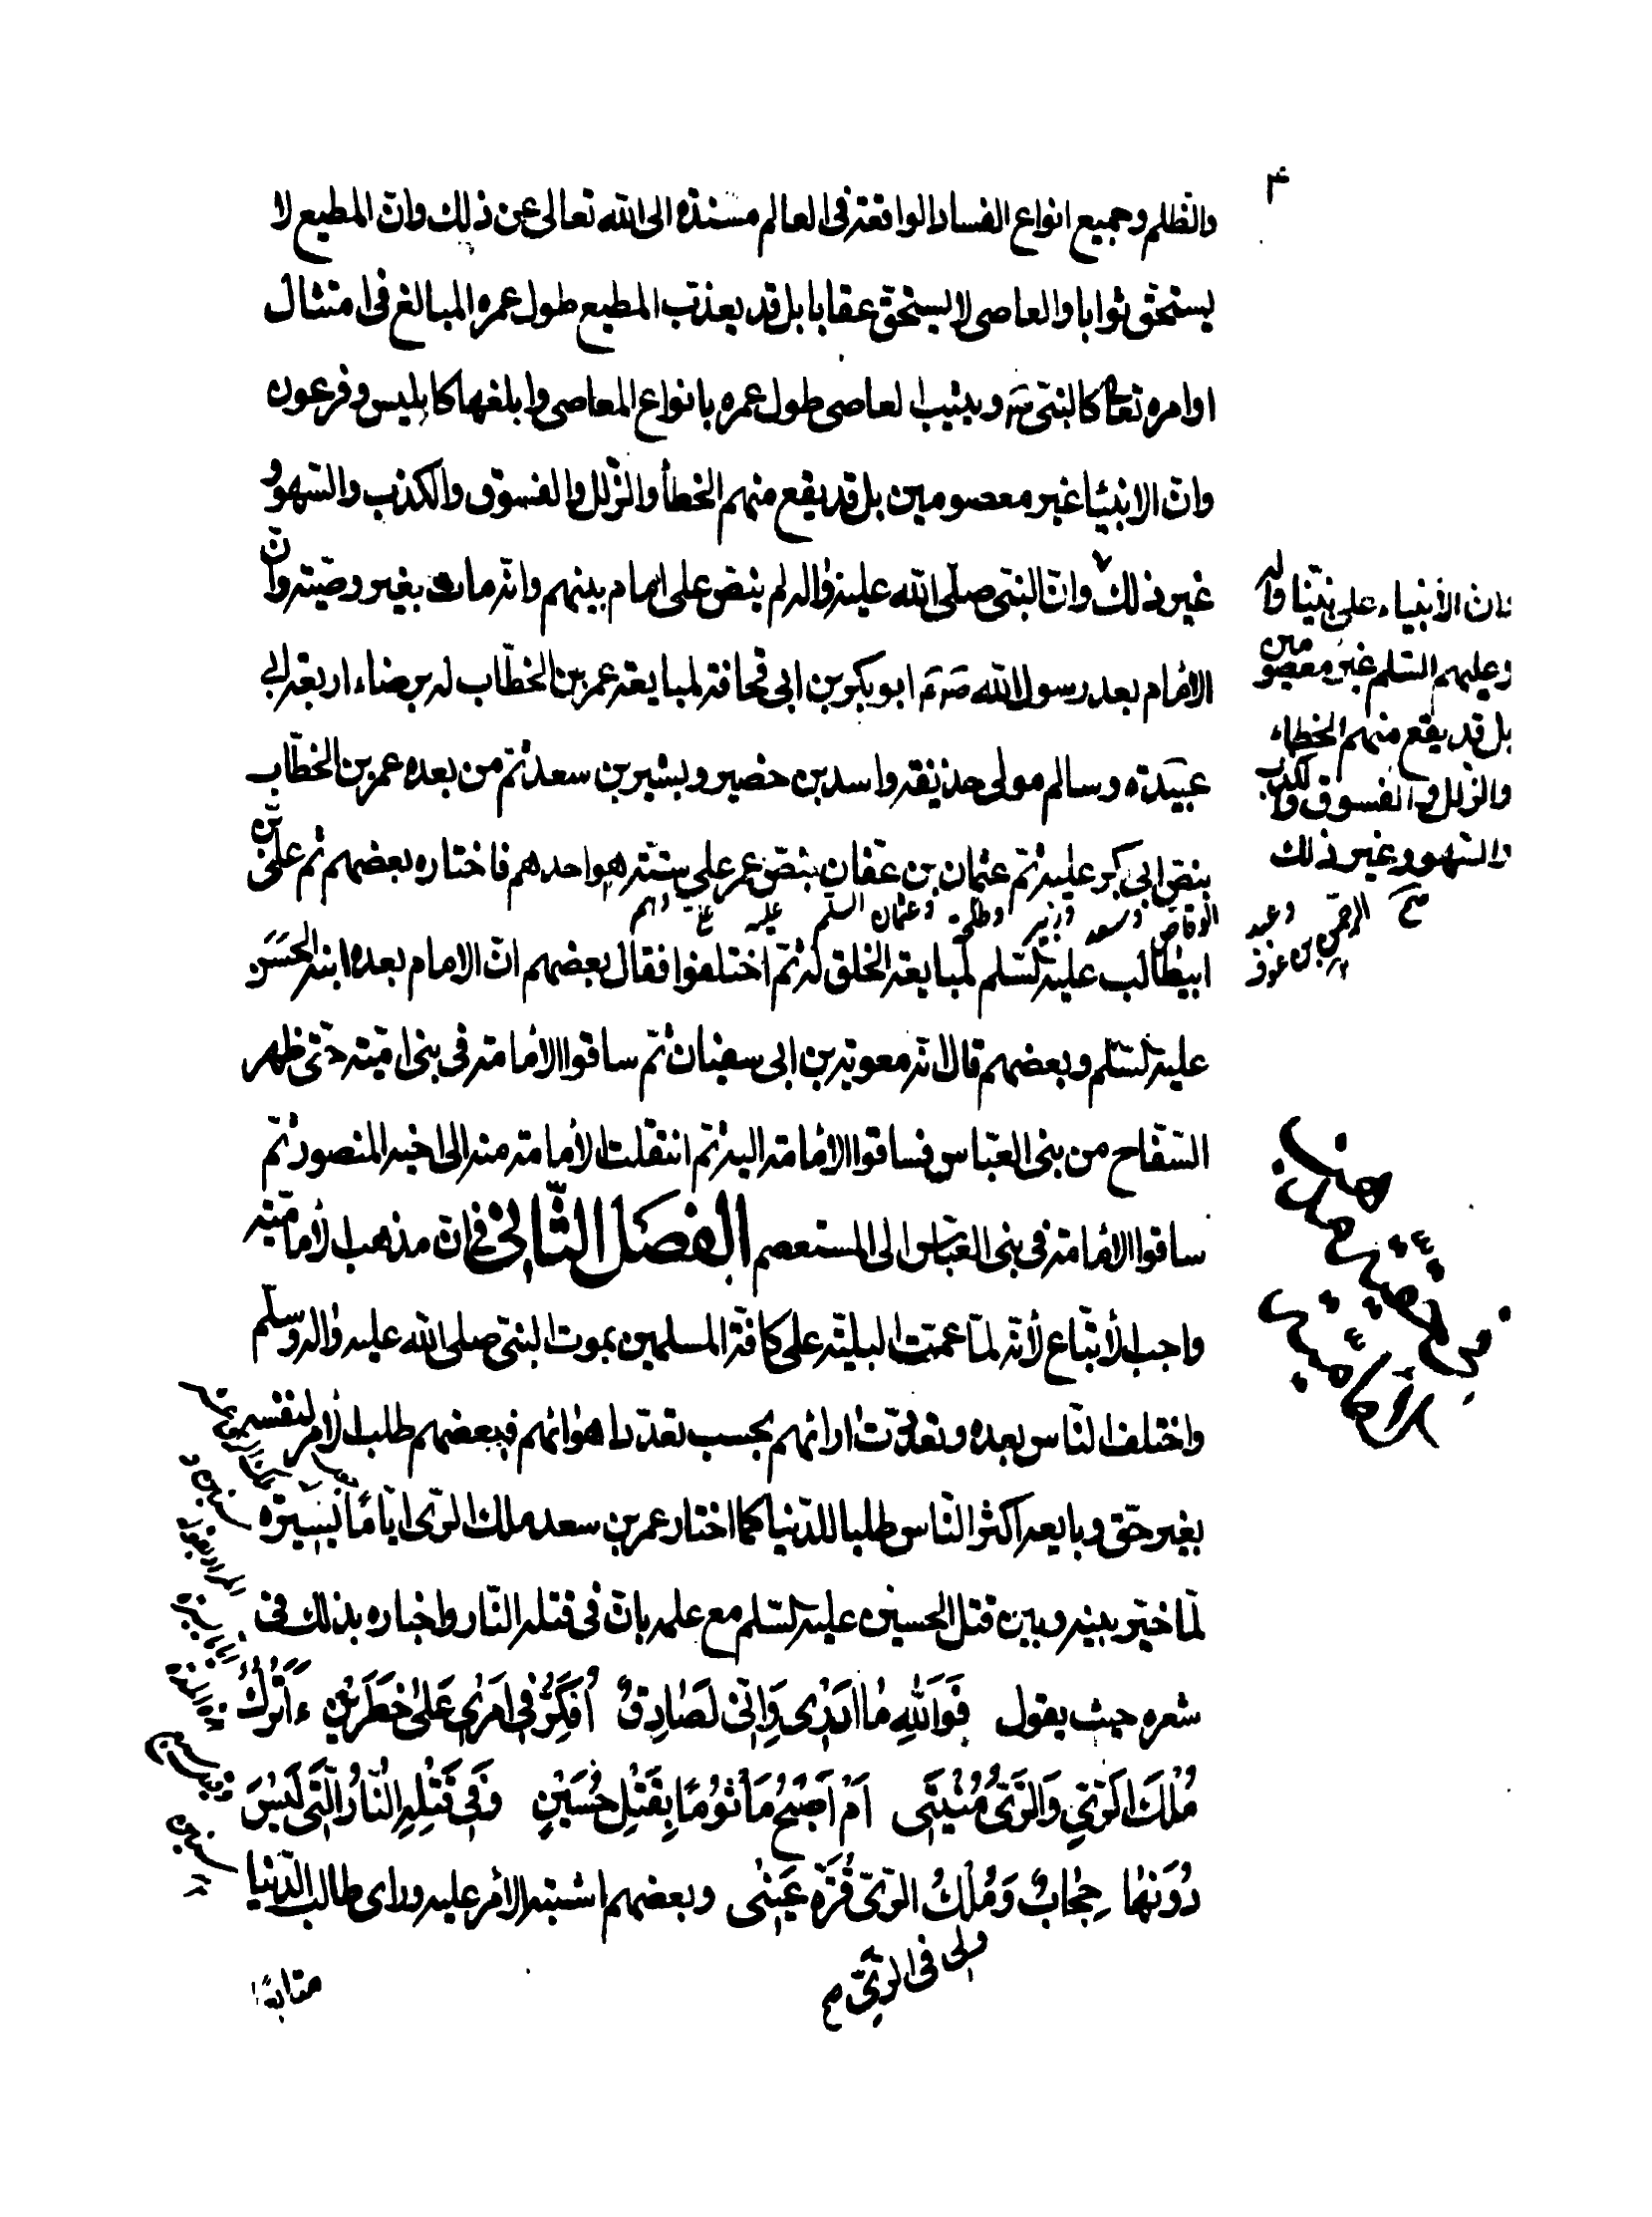 ۴
والظلم وجميع انواع الفساد الواقعة فى العالم مسندة الى الله تعالى عن ذلك وانّ المطيع لا
يستحقّ ثوابا والعاصى لا يستحقّ عقابا بل قد يعذّب المطيع طول عمره المبالغ فى امتثال
اوامره تعالى كالنبىّ ص ويثيب العاصى طول عمره بانواع المعاصى وابلغها كابليس وفرعون
وانّ الانبيا غير معصومين بل قد يقع منهم الخطأ والزّلل والفسوق والكذب والسّهو و
غير ذلك وانّ النبىّ صلّى الله عليه واله لم ينصّ على امام بينهم وانّه مات بغير وصيّة وانّ
الامام بعد رسول الله ص ابو بكر بن ابى قحافة لمبايعة عمر بن الخطّاب له برضاء اربعة ابى
عبيدة وسالم مولى حذيفة واسد بن حضير وبشير بن سعد ثمّ من بعده عمر بن الخطّاب
بنصّ ابى بكر عليه ثمّ عثمان بن عفّان بنصّ عمر على ستّة هو احدهم فاختاره بعضهم ثم علىّ بن
وهم علىّ عليه السلم وعثمان وطلحة وزبير وسعد الوقاص وعبد الرحمن بن عوف صح
ابيطالب عليه السّلم لمبايعة الخلق له ثمّ اختلفوا فقال بعضهم انّ الامام بعده ابنه الحسن
عليه السّلم وبعضهم قال انّه معوية بن ابى سفيان ثمّ ساقوا الامامة فى بنى اميّة حتّى ظهر
السّفّاح من بنى العبّاس فساقوا الامامة اليه ثمّ انتقلت الامامة منه الى اخيه المنصور ثمّ
ساقوا الامامة فى بنى العبّاس الى المستعصم الفصل الثّانى فى انّ مذهب الاماميّة
واجب الاتّباع لانّه لمّا عمّت البليّة على كافّة المسلمين بموت النبىّ صلى الله عليه واله وسلّم
واختلف النّاس بعده وتعدّدت اراؤهم بحسب تعدّد اهوائهم فبعضهم طلب الامر لنفسه
بغير حقّ وبايعه اكثر النّاس طلبا للدّنيا كما اختار عمر بن سعد ملك الرّى ايّامًا يسيرة
لمّا خيّر بينه وبين قتل الحسين عليه السّلم مع علمه بانّ فى قتله النّار واخباره بذلك فى
شعره حيث يقول فَوَاللهِ مٰا اَدْرِى وَاِنّى لَصٰادِقٌ اُفَكِّرُ فِى اَمْرِى عَلىٰ خَطَرَيْنِ ءَاَتْرُكُ
مُلْكَ الرَّىِّ وَالرَّىُّ مُنْيَتِى اَمْ اَصْبَحُ مَأْثُومًا بِقَتْلِ حُسَيْنٍ وَفِى قَتْلِهِ النّٰارُ الَّتِى لَيْسَ
دُونَهٰا حِجٰابٌ وَمُلْكُ الرَّىِّ قُرَّةُ عَيْنِى وبعضهم اشتبه الامر عليه وراى طالب الدّنيا
ولى فى الرّىّ صح
متابعًا
فان الأنبياء على نبيّنا واله
وعليهم السّلم غير معصومين
بل قد يقع منهم الخطاء
والزلل والفسوق والكذب
والسّهو وغير ذلك